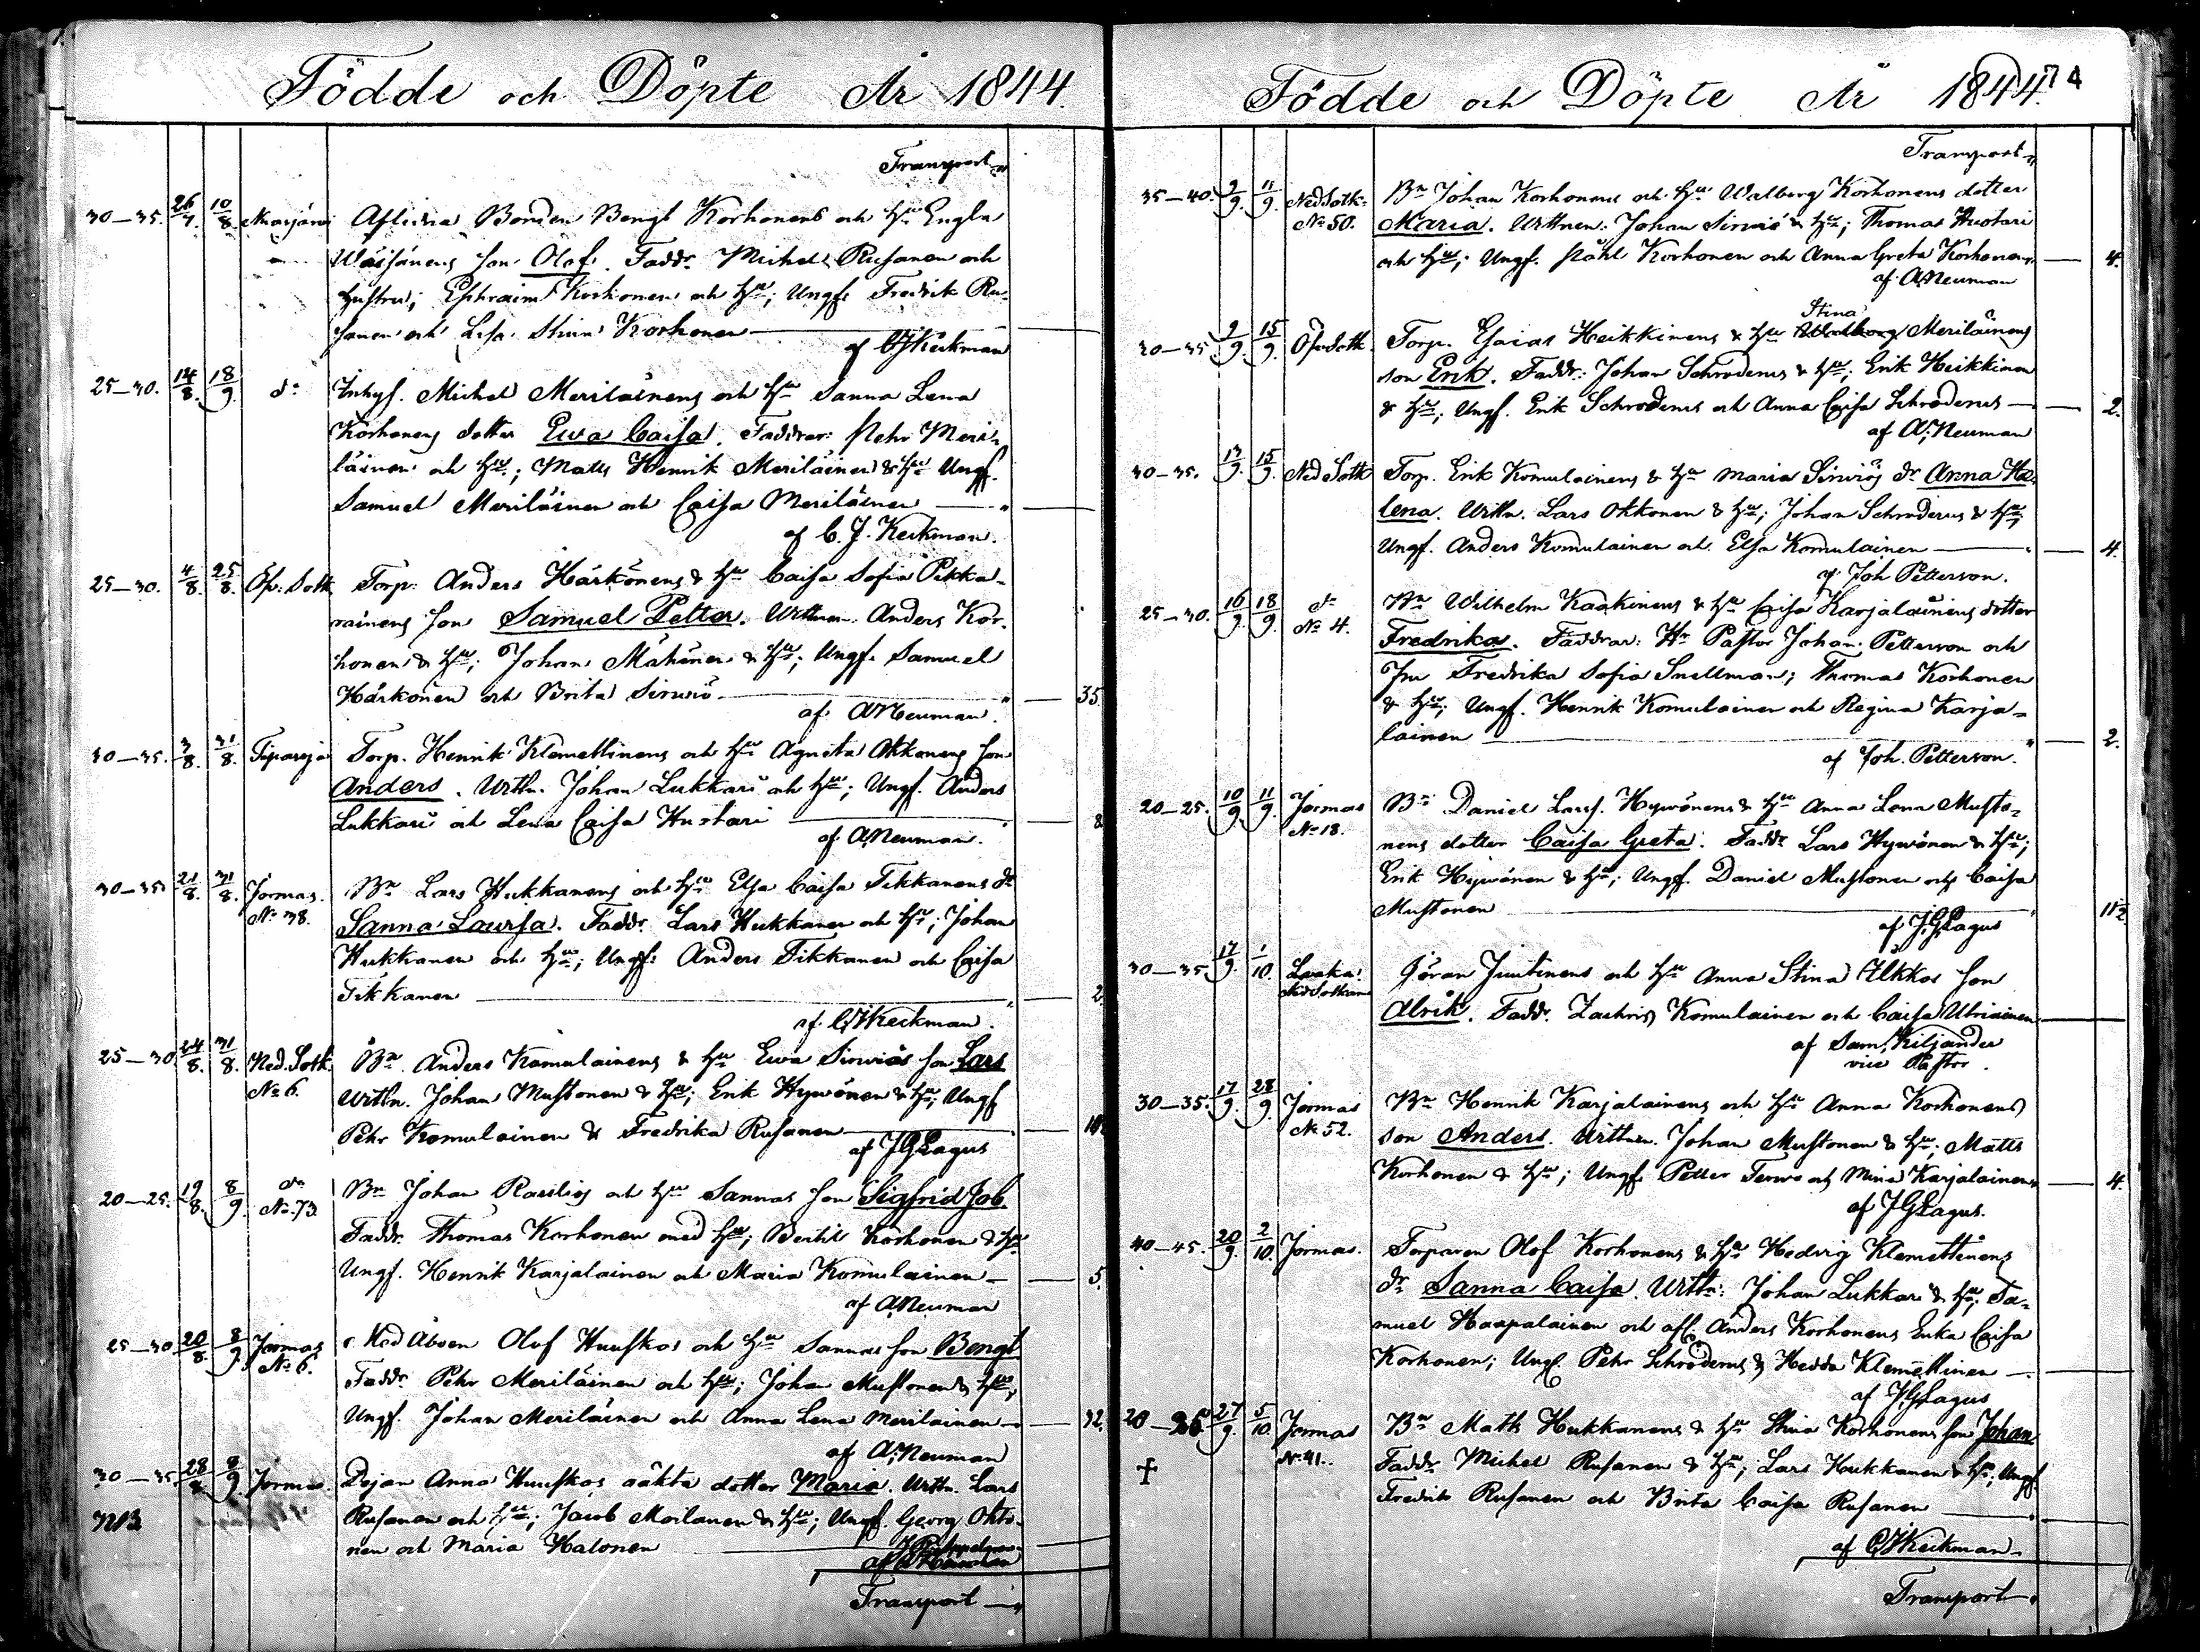 Födde och Döpte År 1844.
Transport
30–35. 26/7. 10/8. Aflidna Bonden Bengt Korhonens och Hu Engla
Wäisänens son Olof. Faddr. Michel Rusanen och
Hustru; Ephraim Korhonen och Hu; Ungf. Fredrik Ru-
sanen och Lisa Stina Korhonen
af CJKeckman
25–30. 14/8. 18/9. do Inhys. Michel Meriläinens och Hu Sanna Lena
Korhonens dotter Ewa Caisa. Faddrar: Pehr Meri-
läinen och Hu; Matts Henrik Meriläinen & Hu Ungf.
Samuel Meriläinen och Caisa Meriläinen
af C. J. Keckman.
25–30. 4/8. 25/8. Öf. Sotk. Torp. Anders Härkönens & Hu Caisa Sofia Pikka-
rainens son Samuel Petter. Wittnen. Anders Kor-
honen & Hu; Johan Määtinen & Hu; Ungf. Samuel
Härkönen och Brita Sirwiö 35
af ANeuman.
30–35. 3/8. 31/8. Tipasoja Torp. Henrik Klemettinens och Hu Agneta Okkonens son
Anders. Wittn. Johan Lukkari och Hu; Ungf. Anders
Lukkari och Lena Caisa Huotari 8
af ANeuman.
30–35 21/8. 31/8. Jormas. Bn Lars Hukkanens och Hu Elsa Caisa Tikkanens dr
No 38. Sanna Lovisa. Faddr. Lars Hukkanen och Hu; Johan
Hukkanen och Hu; Ungf. Anders Tikkanen och Caisa
Tikkanen 2
af CJKeckman.
25–30 24/8. 31/8. Ned. Sotk. Bn Anders Komulainens & Hu Ewa Sirwiös son Lars
No 6. Wittn. Johan Mustonen & Hu; Erik Hywönen & Hu; Ungf
Pehr Komulainen & Fredrika Rusanen
af JGLagus
20–25. 19/8. 8/9. do Bn Johan Rasiliös och Hu Sannas son Sigfrid Job.
No 73. Faddr. Thomas Korhonen med Hu; Bertil Korhonen & Hu
Ungf. Henrik Karjalainen och Maria Komulainen 5
af ANeuman
25–30 20/8. 8/9. Jormas Med Åboen Olof Huuskos och Hu Sannas son Bengt
No 6. Faddr. Pehr Meriläinen och Hu; Johan Mustonen & Hu;
Ungf. Johan Meriläinen och Anna Lena Meriläinen 12.
af A. Neuman
30–35 28/8. 8/9. Jormas. Pojan Anna Huuskos oäkta dotter Maria. Wittn. Lars
Rusanen och Hu; Jacob Moilanen & Hu; Ungf. Georg Okko-
nen och Maria Halonen
Transport
Födde och Döpte År 1844. 74
Transport
35–40. 9/9. 11/9. Ned Sotk. Bn Johan Korhonens och Hu Walborg Korhonens dotter
No 50. Maria. Wittnen: Johan Sirwiö & Hu; Thomas Huotari
och Hu; Ungf. Påhl Korhonen och Anna Greta Korhonen 4.
af ANeuman
Stina
30–35 9/9. 15/9. Öfv Sotk. Torp. Esaias Heikkinens & Hu Walborg Meriläinens
son Erik. Faddr: Johan Schroderus & Hu; Erik Heikkinen
& Hu; Ungf. Erik Schroderus och Anna Caisa Schroderus 2.
af A. Neuman
30–35. 13/9. 15/9. Ned Sotk Torp. Erik Komulainens & Hu Maria Sirwiös dr Anna He-
lena. Wittn. Lars Okkonen & Hu; Johan Schroderus & Hu;
Ungf. Anders Komulainen och Elsa Komulainen 4.
af Joh Petterson.
25–30. 16/9. 18/9. do Bn Wilhelm Kaakinens & Hu Caisa Karjalainens dotter
No 4. Fredrika. Faddrar: Hr Pastor Johan Petterson och
Fru Fredrika Sofia Snellman; Thomas Korhonen
& Hu; Ungf. Henrik Komulainen och Regina Karja-
lainen 2.
af Joh. Petterson.
20–25. 10/9. 11/9. Jormas Bn Daniel Larss. Hywönens & Hu Anna Lena Musto-
No 18. nens dotter Caisa Greta. Faddr. Lars Hywönen & Hu;
Erik Hywönen & Hu; Ungf. Daniel Mustonen och Caisa
Mustonen
af JGLagus
30–35 17/9. 1/10. Göran Juntinens och Hu Anna Stina Älkkös son
Ned Sotkamo Alrik. Faddr. Zachris Komulainen och Caisa Ulriainen
af Sam. Kiljander
vice Pastor.
30–35. 17/9. 28/9. Jormas Bn Henrik Karjalainens och Hu Anna Korhonens
No 52. son Anders. Wittnen. Johan Mustonen & Hu; Matts
Korhonen & Hu; Ungf. Petter Terwo och Mina Karjalainen 4.
af JGLagus.
40–45. 20/9. 2/10. Jormas. Torparen Olof Korhonens & Hu Hedvig Klemettinens
dr Sanna Caisa. Wittn: Johan Lukkari & Hu; Sa-
muel Haapalainen och afl. Anders Korhonens Enka Caisa
Korhonen; Ungf. Pehr Schroderus & Hedda Klemettinen
af JGLagus
20–25 27/9. 5/10. Jormas Bn Matts Hukkanens & Hu Stina Korhonens son Johan
† No 41. Faddr. Michel Rusanen & Hu; Lars Hukkanen & Hu; Ungf.
Fredrik Rusanen och Brita Caisa Rusanen
af CJKeckman
Transport